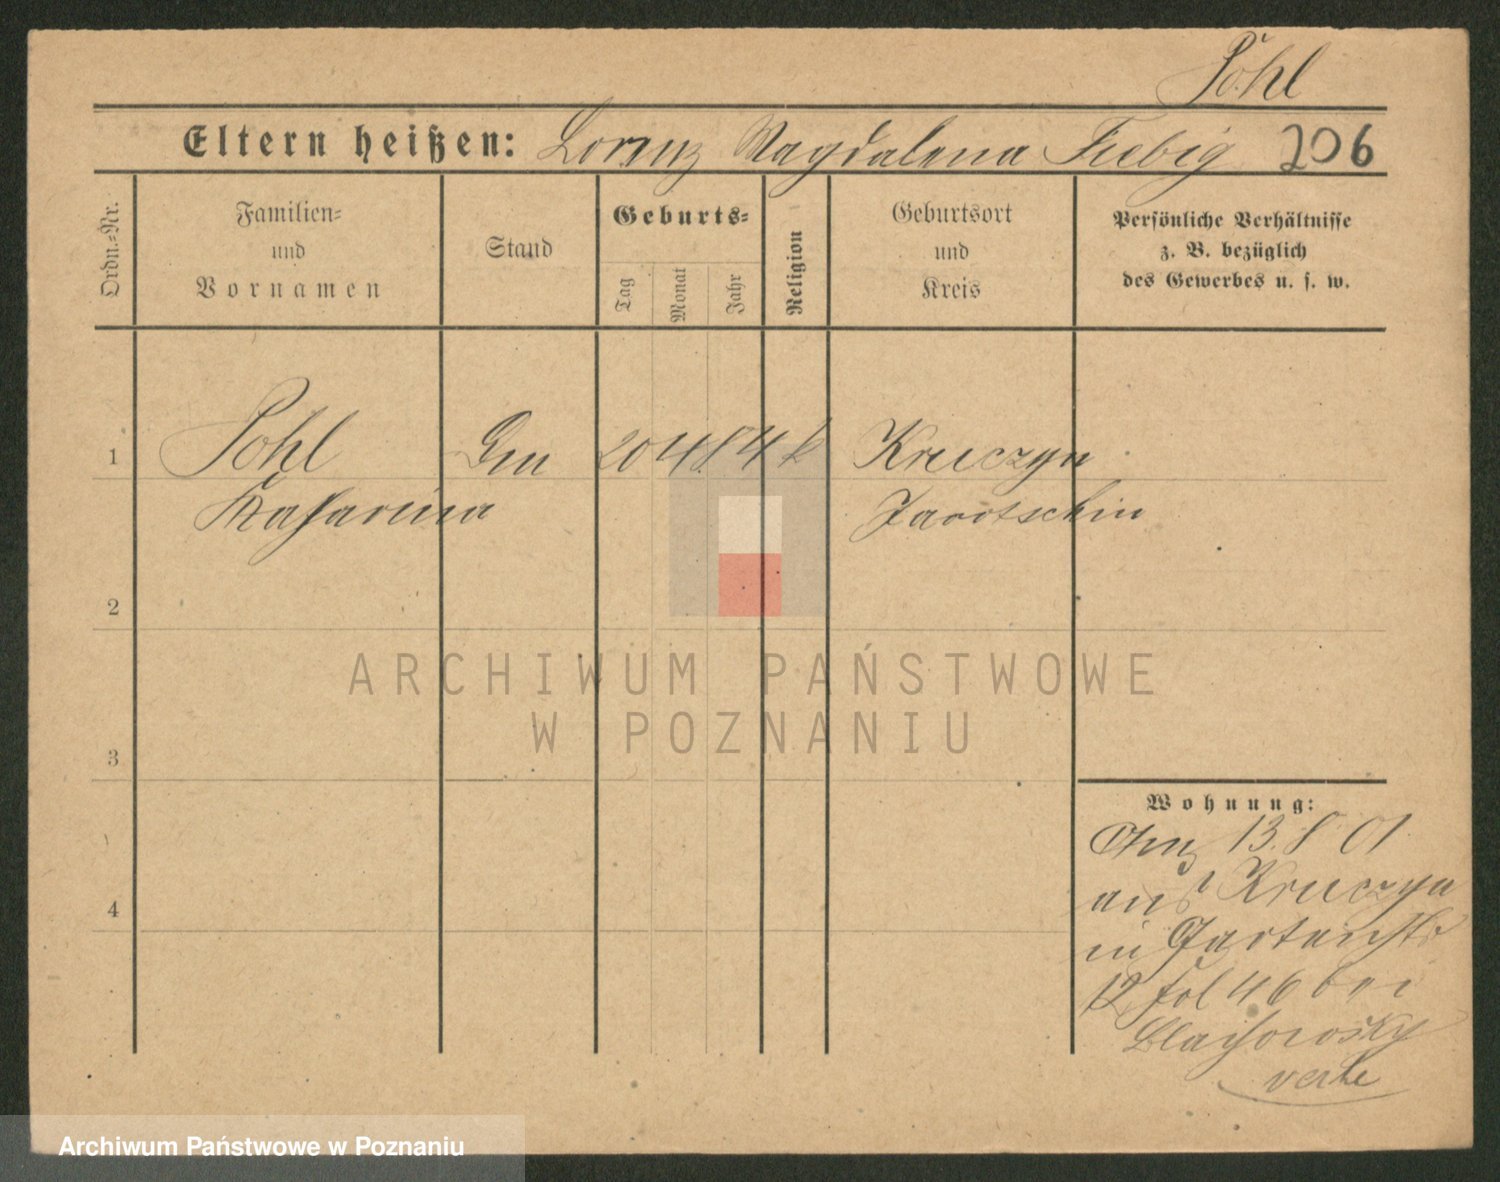 Pohl
Eltern heißen: Lorenz Magdalena Fiebig 206
Ordn.-Nr.
Familien-
und
Vornamen
Stand
Geburts-
Tag
Monat
Jahr
Religion
Geburtsort
und
Kreis
Persönliche Verhältnisse
z. B. bezüglich
des Gewerbes u. s. w.
1 Pohl 20 4 84 k Kruczyn
Katharina Jarotschin
2
3
4
ARCHIWUM PAŃSTWOWE
W POZNANIU
Wohnung:
13.8 01
aus Kruczyn
in Gartenstr
12 fol 46 bei
Archiwum Państwowe w Poznaniu